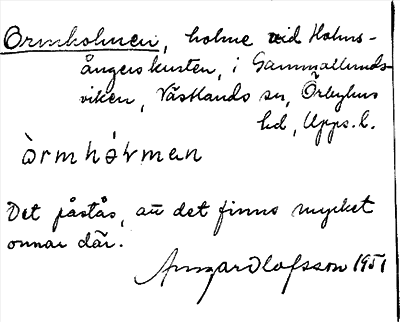 Ormholmen, holme vid Holms-
ångers kusten, i Gammallunds-
viken, Västlands sn, Örbyhus
hd, Upps. l.
òrmhólmen
Det påstås, att det finns mycket
ormar där.
Ansgar Olofsson 1951